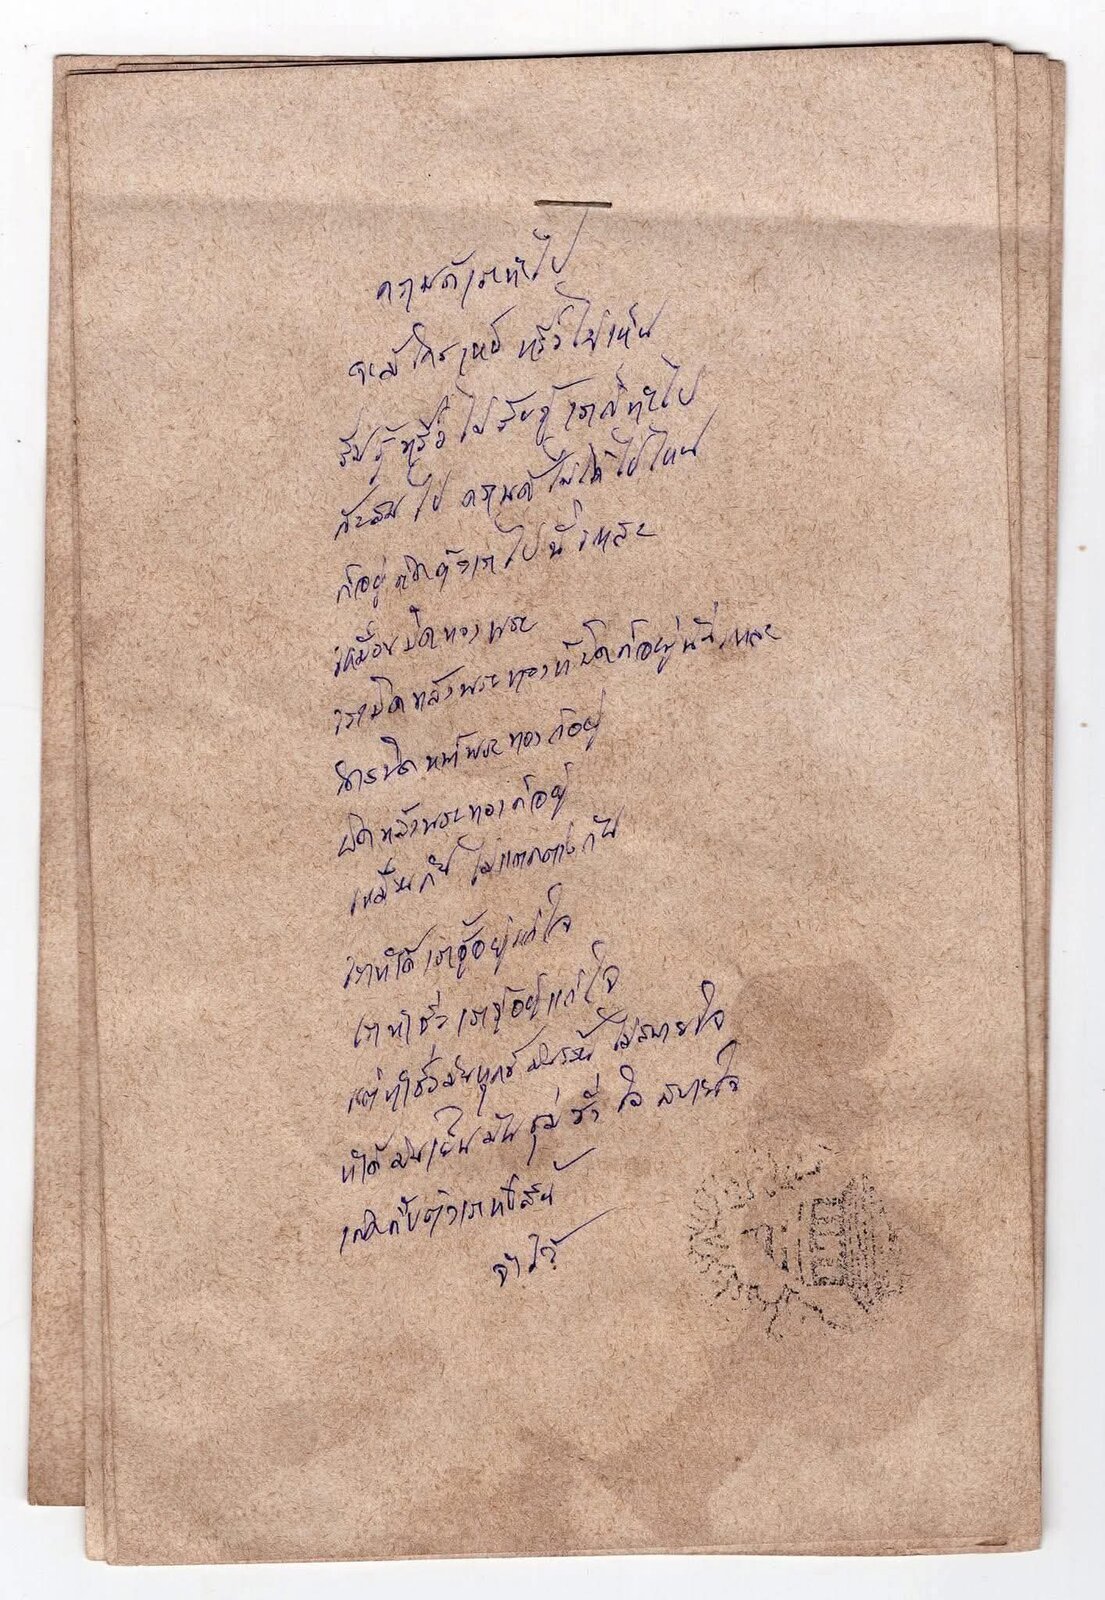 ความดีเราทำไป
จะมีใครเห็น หรือไม่เห็น
รับรู้หรือไม่รับรู้ เราก็ทำไป
ความดีไม่ได้ไปไหน
ก็อยู่กับตัวเราไปนี่แหละ
เหมือนปิดทองพระ
เราปิดหลังพระทองที่ปิดก็อยู่นี่แหละ
ปิดหน้าพระ ทองก็อยู่
ปิดหลังพระทองก็อยู่
เหมือนกัน ไม่แตกต่างกัน
เราทำดี เรารู้อยู่แก่ใจ
เราทำชั่ว เรารู้อยู่แก่ใจ
แต่ทำชั่วมันทุกข์ มันร้อน ไม่สบายใจ
ทำดี มันเย็น มันชุ่มช่ำ ใจ สบายใจ
จำไว้